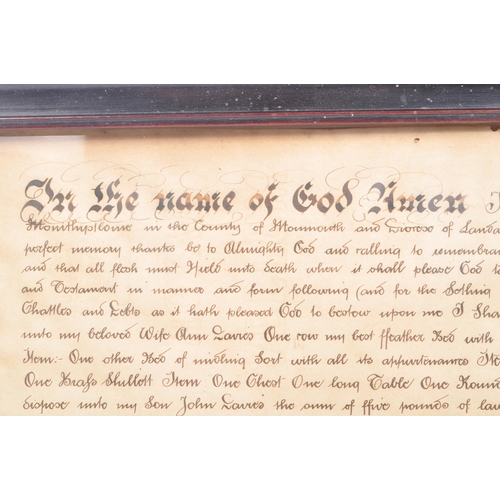 In the name of God Amen I
in the County of Monmouth and Diocese of Landa
perfect memory thanks be to Almighty God and calling to remembran
and that all flesh must Yield unto death when it shall please God to
and Testament in manner and form following (and for the Setling
Chattles and Debts as it hath pleased God to bestow upon me I Sha
unto my beloved Wife Ann Davies One cow my best ffeather Bed with
Item:- One other Bed of Sort with all its appurtenances Ite
One Brass Skillett Item One Chest One long Table One Roun
dispose unto my Son John Davies the sum of ffive pounds of law